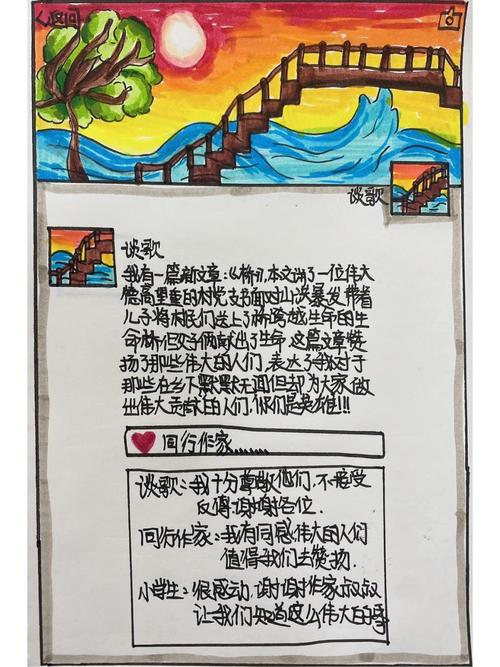 く返回
谈歌
谈歌
我有一篇新文章:《桥》,本文讲了一位伟大
德高望重的村党支书面对山洪暴发,带着
儿子将村民们送上了桥跨越生命的生
命桥但父子俩献出了生命,这篇文章赞
扬了那些伟大的人们,表达了我对于
那些在乡下默默无闻但却为大家做
出伟大贡献的人们,你们是英雄!!!
同行作家......
谈歌:我十分尊敬他们,不接受
反得谢谢各位.
同行作家:我有同感伟大的人们
值得我们去赞扬.
小学生:很感动,谢谢作家叔叔
让我们知道这么伟大的事